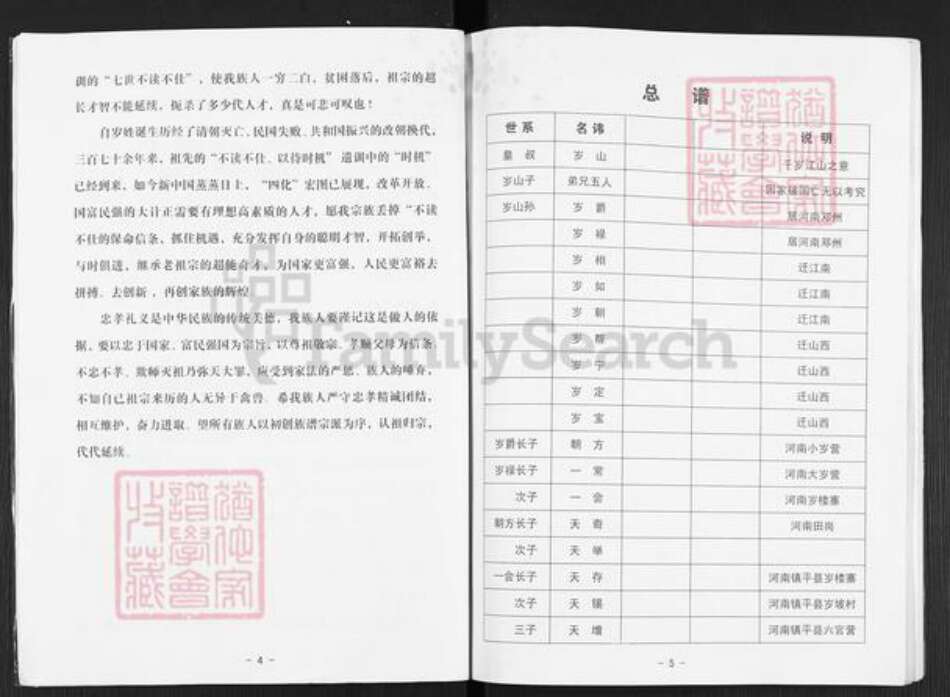 训的“七世不读不仕”，使我族人一穷二白，贫困落后，祖宗的超
长才智不能延续，扼杀了多少代人才，真是可悲可叹也！
自岁姓诞生历经了清朝灭亡、民国失败、共和国振兴的改朝换代，
三百七十余年来，祖先的“不读不仕、以待时机”遗训中的“时机”
已经到来，如今新中国蒸蒸日上，“四化”宏图已展现，改革开放、
国富民强的大计正需要有理想高素质的人才，愿我宗族丢掉“不读
不仕的保命信条，抓住机遇，充分发挥自身的聪明才智，开拓创举，
与时俱进，继承老祖宗的超能奇才，为国家更富强、人民更富裕去
拼搏、去创新，再创家族的辉煌
忠孝礼义是中华民族的传统美德，我族人要谨记这是做人的依
据，要以忠于国家、富民强国为宗旨，以尊祖敬宗、孝顺父母为信条
不忠不孝、欺师灭祖乃弥天大罪，应受到家法的严惩、族人的唾弃，
不知自己祖宗来历的人无异于禽兽。希我族人严守忠孝精诚团结，
相互维护，奋力进取。望所有族人以初创族谱宗派为序，认祖归宗，
代代延续。
- 4 -
总 谱
世系 名讳 说明
皇叔 岁山 千岁江山之意
岁山子 弟兄五人 因家破国亡无以考究
岁山孙 岁爵 居河南邓州
岁禄 居河南邓州
岁相 迁江南
岁如 迁江南
岁朝 迁江南
岁 迁山西
岁宁 迁山西
岁定 迁山西
岁宝 迁山西
岁爵长子 朝方 河南小岁营
岁禄长子 一常 河南大岁营
次子 一会 河南岁楼寨
朝方长子 天奇 河南田岗
次子 天举
一会长子 天存 河南镇平县岁楼寨
次子 天锡 河南镇平县岁坡村
三子 天增 河南镇平县六官营
- 5 -
FamilySearch